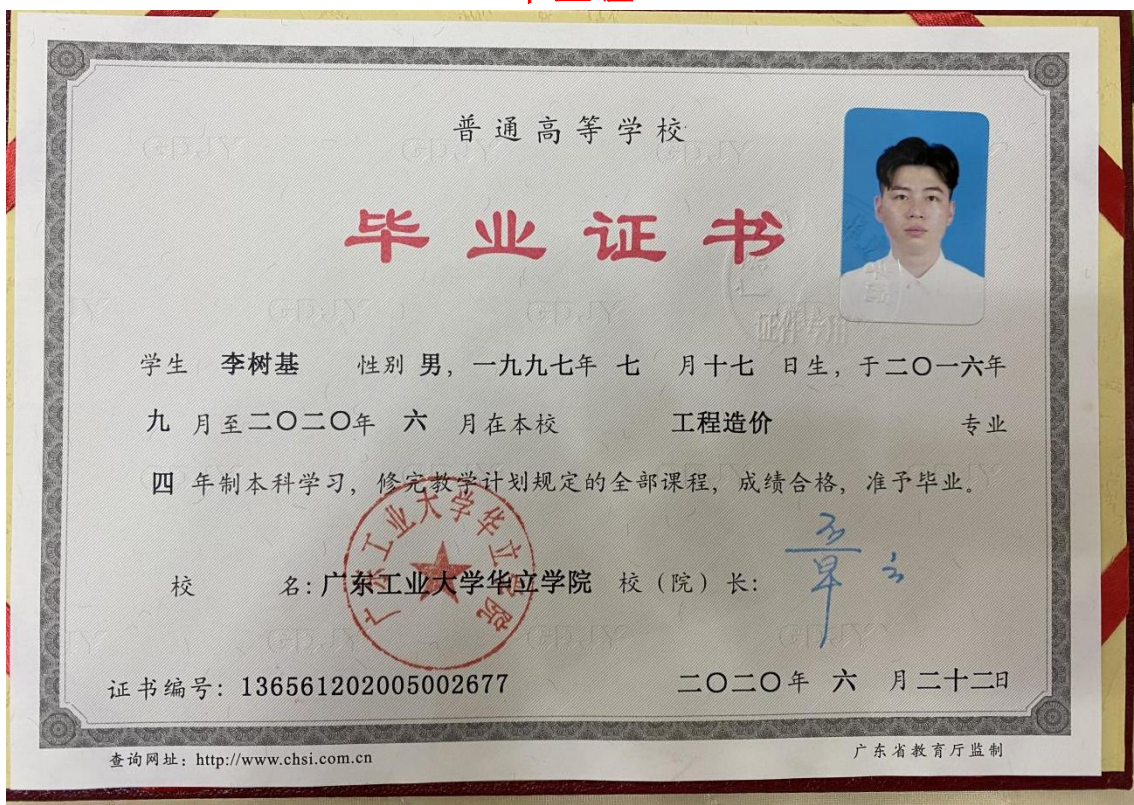 普通高等学校
毕业证书
证件专用
学生 李树基 性别 男，一九九七年 七 月十七 日生，于二〇一六年
九 月至二〇二〇年 六 月在本校 工程造价 专业
四 年制本科学习，修完教学计划规定的全部课程，成绩合格，准予毕业。
广东工业大学华立学院
校 名：广东工业大学华立学院 校（院）长：
证书编号：136561202005002677 二〇二〇年 六 月二十二日
查询网址：http://www.chsi.com.cn 广东省教育厅监制
GDJY